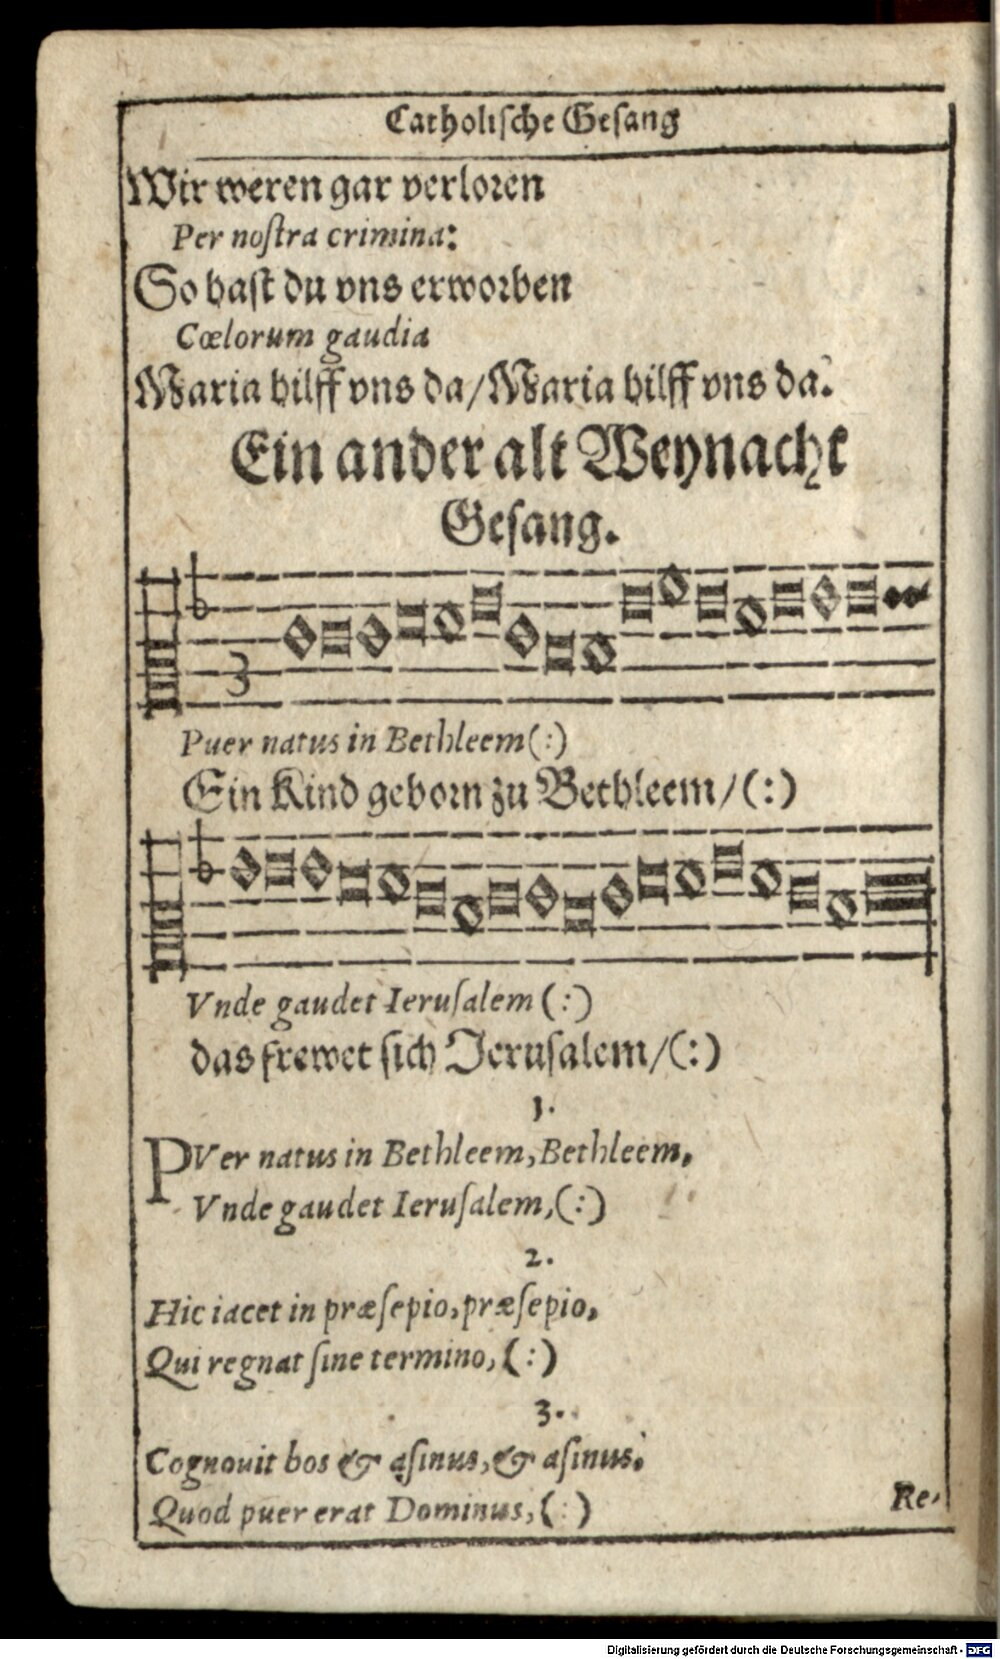 Catholische Gesang
Wir weren gar verloren
Per noſtra crimina:
So haſt du vns erworben
Cœlorum gaudia
Maria hilff vns da/Maria hilff vns da.
Ein ander alt Weynacht
Geſang.
3
Puer natus in Bethleem(:)
Ein Kind geborn zu Bethleem/(:)
Vnde gaudet Ieruſalem (:)
das frewet ſich Jeruſalem/(:)
1.
PVer natus in Bethleem, Bethleem,
Vnde gaudet Ieruſalem,(:)
2.
Hic iacet in præſepio, præſepio,
Qui regnat ſine termino, (:)
3.
Cognouit bos & aſinus, & aſinus.
Quod puer erat Dominus, (:)
Re-
Digitalisierung gefördert durch die Deutsche Forschungsgemeinschaft - DFG